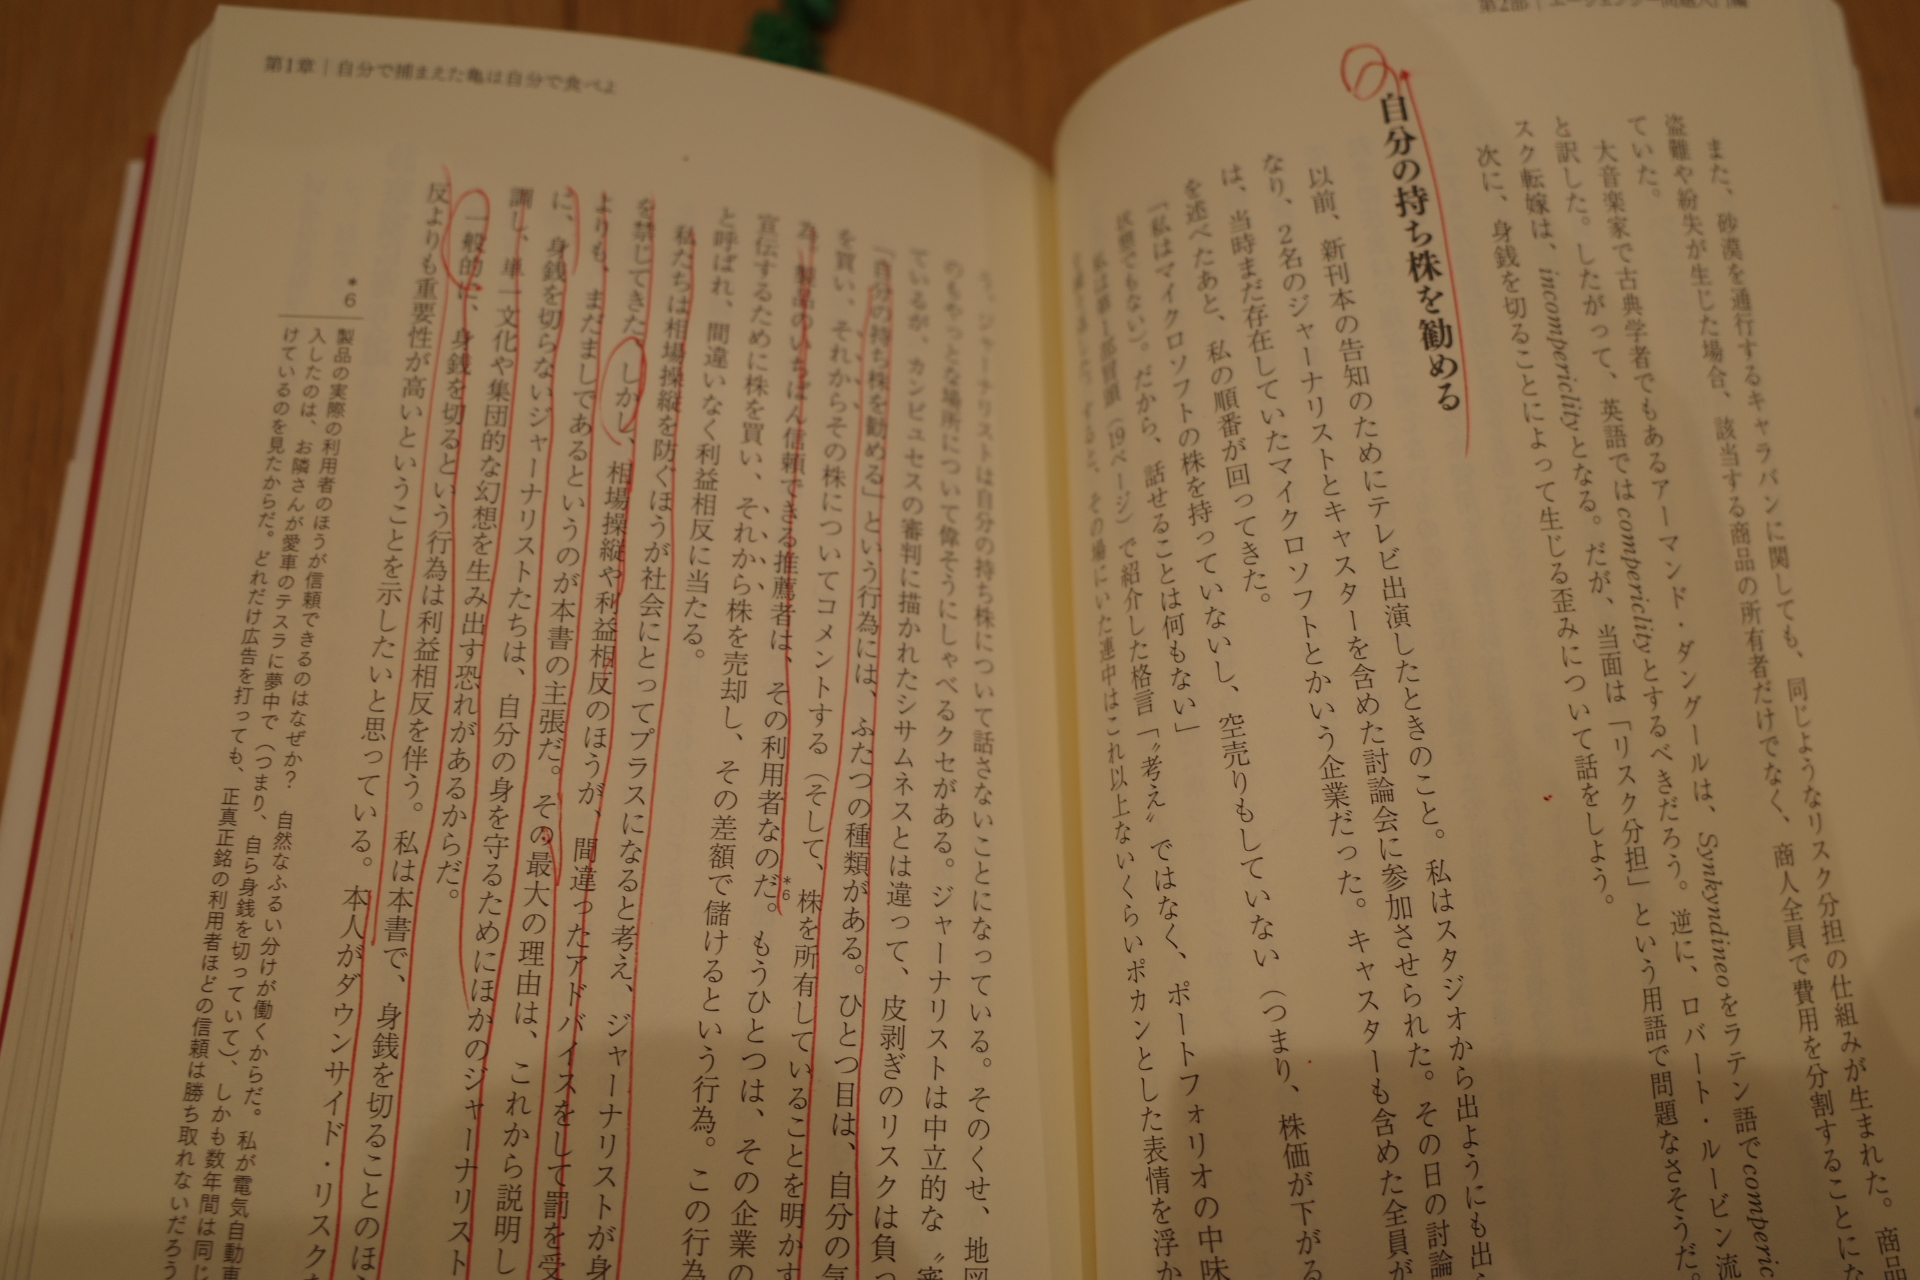 第2部 | エージェンシー問題入門編
また、砂漠を通行するキャラバンに関しても、同じようなリスク分担の仕組みが生まれた。商品
盗難や紛失が生じた場合、該当する商品の所有者だけでなく、商人全員で費用を分割することにな
ていた。
大音楽家で古典学者でもあるアーマンド・ダングールは、Synkyndineoをラテン語でcomperic
と訳した。したがって、英語ではcompericlityとするべきだろう。逆に、ロバート・ルービン流
スク転嫁は、incompericlityとなる。だが、当面は「リスク分担」という用語で問題なさそうだ。
次に、身銭を切ることによって生じる歪みについて話をしよう。
自分の持ち株を勧める
以前、新刊本の告知のためにテレビ出演したときのこと。私はスタジオから出ようにも出
なり、2名のジャーナリストとキャスターを含めた討論会に参加させられた。その日の討論
は、当時まだ存在していたマイクロソフトとかいう企業だった。キャスターも含めた全員が
を述べたあと、私の順番が回ってきた。
「私はマイクロソフトの株を持っていないし、空売りもしていない(つまり、株価が下がる
状態でもない)。だから、話せることは何もない」
私は第1部冒頭(19ページ)で紹介した格言「〝考え〟ではなく、ポートフォリオの中味
その場にいた連中はこれ以上ないくらいポカンとした表情を浮か
う。ジャーナリストは自分の持ち株について話さないことになっている。そのくせ、地図
のもやっとな場所について偉そうにしゃべるクセがある。ジャーナリストは中立的な〝審
ているが、カンビュセスの審判に描かれたシサムネスとは違って、皮剥ぎのリスクは負っ
「自分の持ち株を勧める」という行為には、ふたつの種類がある。ひとつ目は、自分の気
を買い、それからその株についてコメントする(そして、株を所有していることを明かす
為。製品のいちばん信頼できる推薦者は、その利用者なのだ。*6もうひとつは、その企業の
宣伝するために株を買い、それから株を売却し、その差額で儲けるという行為。この行為
と呼ばれ、間違いなく利益相反に当たる。
私たちは相場操縦を防ぐほうが社会にとってプラスになると考え、ジャーナリストが身
を禁じてきた。しかし、相場操縦や利益相反のほうが、間違ったアドバイスをして罰を受
よりも、まだましであるというのが本書の主張だ。その最大の理由は、これから説明し
に、身銭を切らないジャーナリストたちは、自分の身を守るためにほかのジャーナリスト
調し、単一文化や集団的な幻想を生み出す恐れがあるからだ。
一般的に、身銭を切るという行為は利益相反を伴う。私は本書で、身銭を切ることのほ
反よりも重要性が高いということを示したいと思っている。本人がダウンサイド・リスク
*6
製品の実際の利用者のほうが信頼できるのはなぜか? 自然なふるい分けが働くからだ。私が電気自動車
入したのは、お隣さんが愛車のテスラに夢中で(つまり、自ら身銭を切っていて)、しかも数年間は同じ
けているのを見たからだ。どれだけ広告を打っても、正真正銘の利用者ほどの信頼は勝ち取れないだろう
第1章 | 自分で捕まえた亀は自分で食べよ